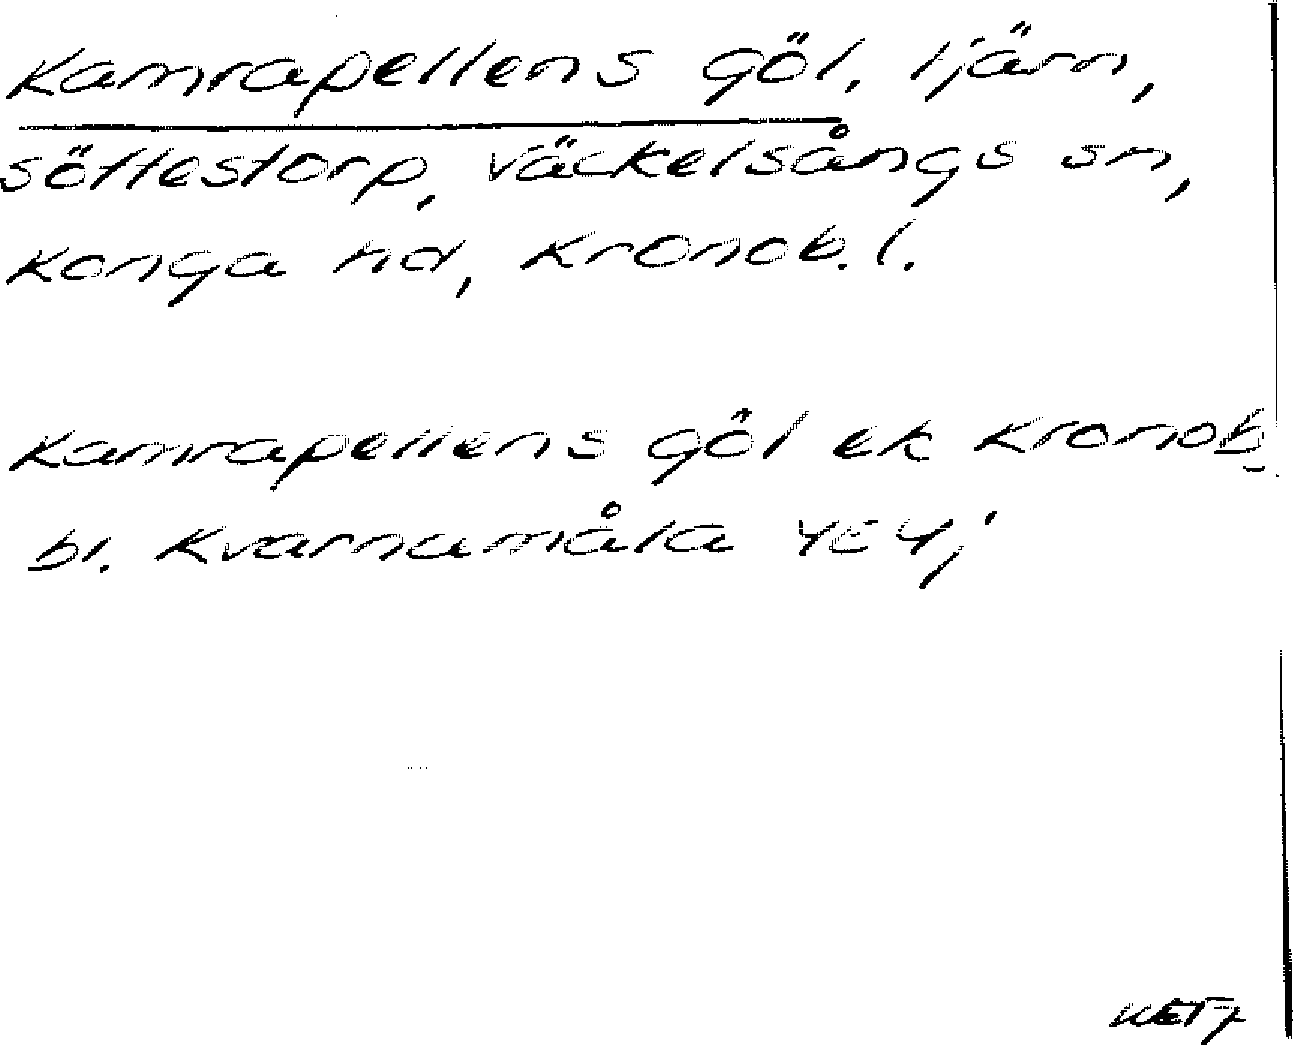 Kamrapellens göl, tjärn,
Söftestorp, Väckelsångs sn,
Konga hd, Kronob. l.
Kamrapellens göl ek Kronob.
bl. Kvarnamåla 4E4j